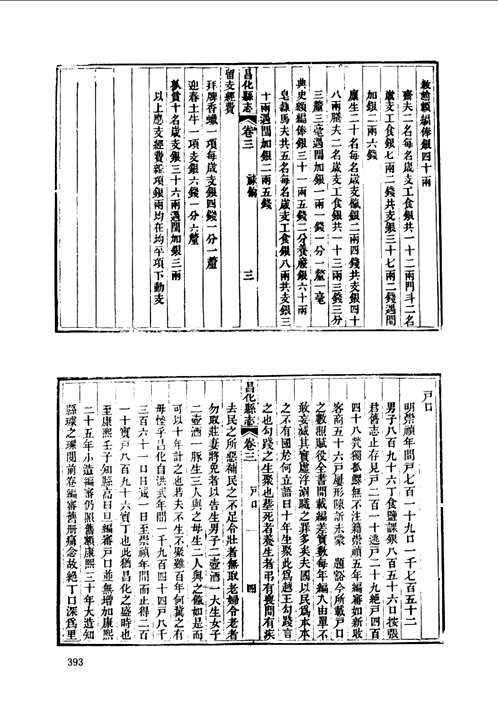 教諭額編俸銀四十兩
齋夫二名每名歲支工食銀共一十二兩門斗二名
歲支工食銀七兩二錢共支銀三十七兩二錢遇閏
加銀二兩六錢
廩生二十名每名歲支餼銀二兩四錢共支銀四十
八兩膳夫二名歲支工食銀共一十三兩三錢三分
三釐三毫遇閏加銀一兩一錢一分一釐一毫
典史額編俸銀三十一兩五錢二分養廉銀六十兩
皂隸馬夫共五名每名歲支工食銀八兩共支銀三
十兩遇閏加銀二兩五錢
昌化縣志 卷三 三
留支經費
拜牌香燭一項每歲支銀四錢一分一釐
迎春土牛一項支銀六錢一分六釐
孤貧十名歲支銀三十六兩遇閏加銀三兩
以上應支經費雜項銀兩均在均平項下動支
戶口
明崇禎年間戶七百一十九口一千七百五十二
男子八百九十六丁食鹽課銀八百五十六口按張
君舊志止存見戶二百一十逃戶二十九絕戶四百
四十八獎獨臥無不注籍崇禎五年編審如新收
客商五十六戶屢形陳訴未蒙 題豁今所載戶口
之數照賦役全書開載編差實數每年編入由單不
敢妄減其實虛浮溺職之罪多矣夫國以民為本本
之不有國於何立語曰十年生聚此爲越王勾踐言
之也勾踐之生聚也葬死者養生者弔有喪問有疾
昌化縣志 卷三 戶口 四
去民之所惡補民之不足令壯者無取老婦令老者
勿取莊妻將免者以告生男子二壺酒一犬生女子
二壺酒一豚生三人與之母生二人與之餼如是而
可以十年計之也若夫不生不聚雖百年何裨之有
毋怪乎昌化自洪武年間一千九百四十四戶八千
三百六十一口日減一日至崇禎年間而止得二百
一十實戶八百九十六實丁也此猶昌化之盛時也
至康熙壬子知縣高曰旦編審戶口並無增加康熙
二十五年小造編審仍照舊額康熙三十年大造知
縣璩之璨閱前卷編審舊冊痛念故絕丁口深爲里
393